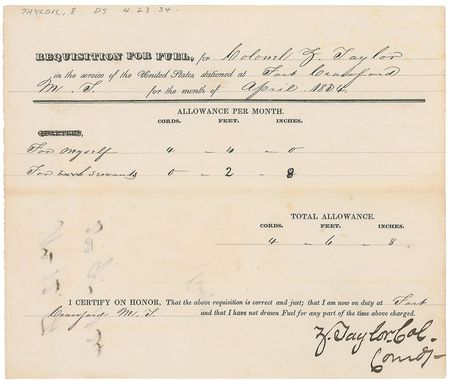 TAYLOR, Z. DS 4.23.34.
REQUISITION FOR FUEL, for Colonel Z Taylor
in the service of the United States, stationed at Fort Crawford
M. T. for the month of April 1834.
ALLOWANCE PER MONTH.
CORDS. FEET. INCHES.
QUARTERS,
For myself 4 - 4 - 0
For servants 0 - 2 - 8
TOTAL ALLOWANCE.
CORDS. FEET. INCHES.
4 - 6 - 8.
I CERTIFY ON HONOR, That the above requisition is correct and just; that I am now on duty at Fort
Crawford M. T. and that I have not drawn Fuel for any part of the time above charged.
Z. Taylor Col.
Comdt